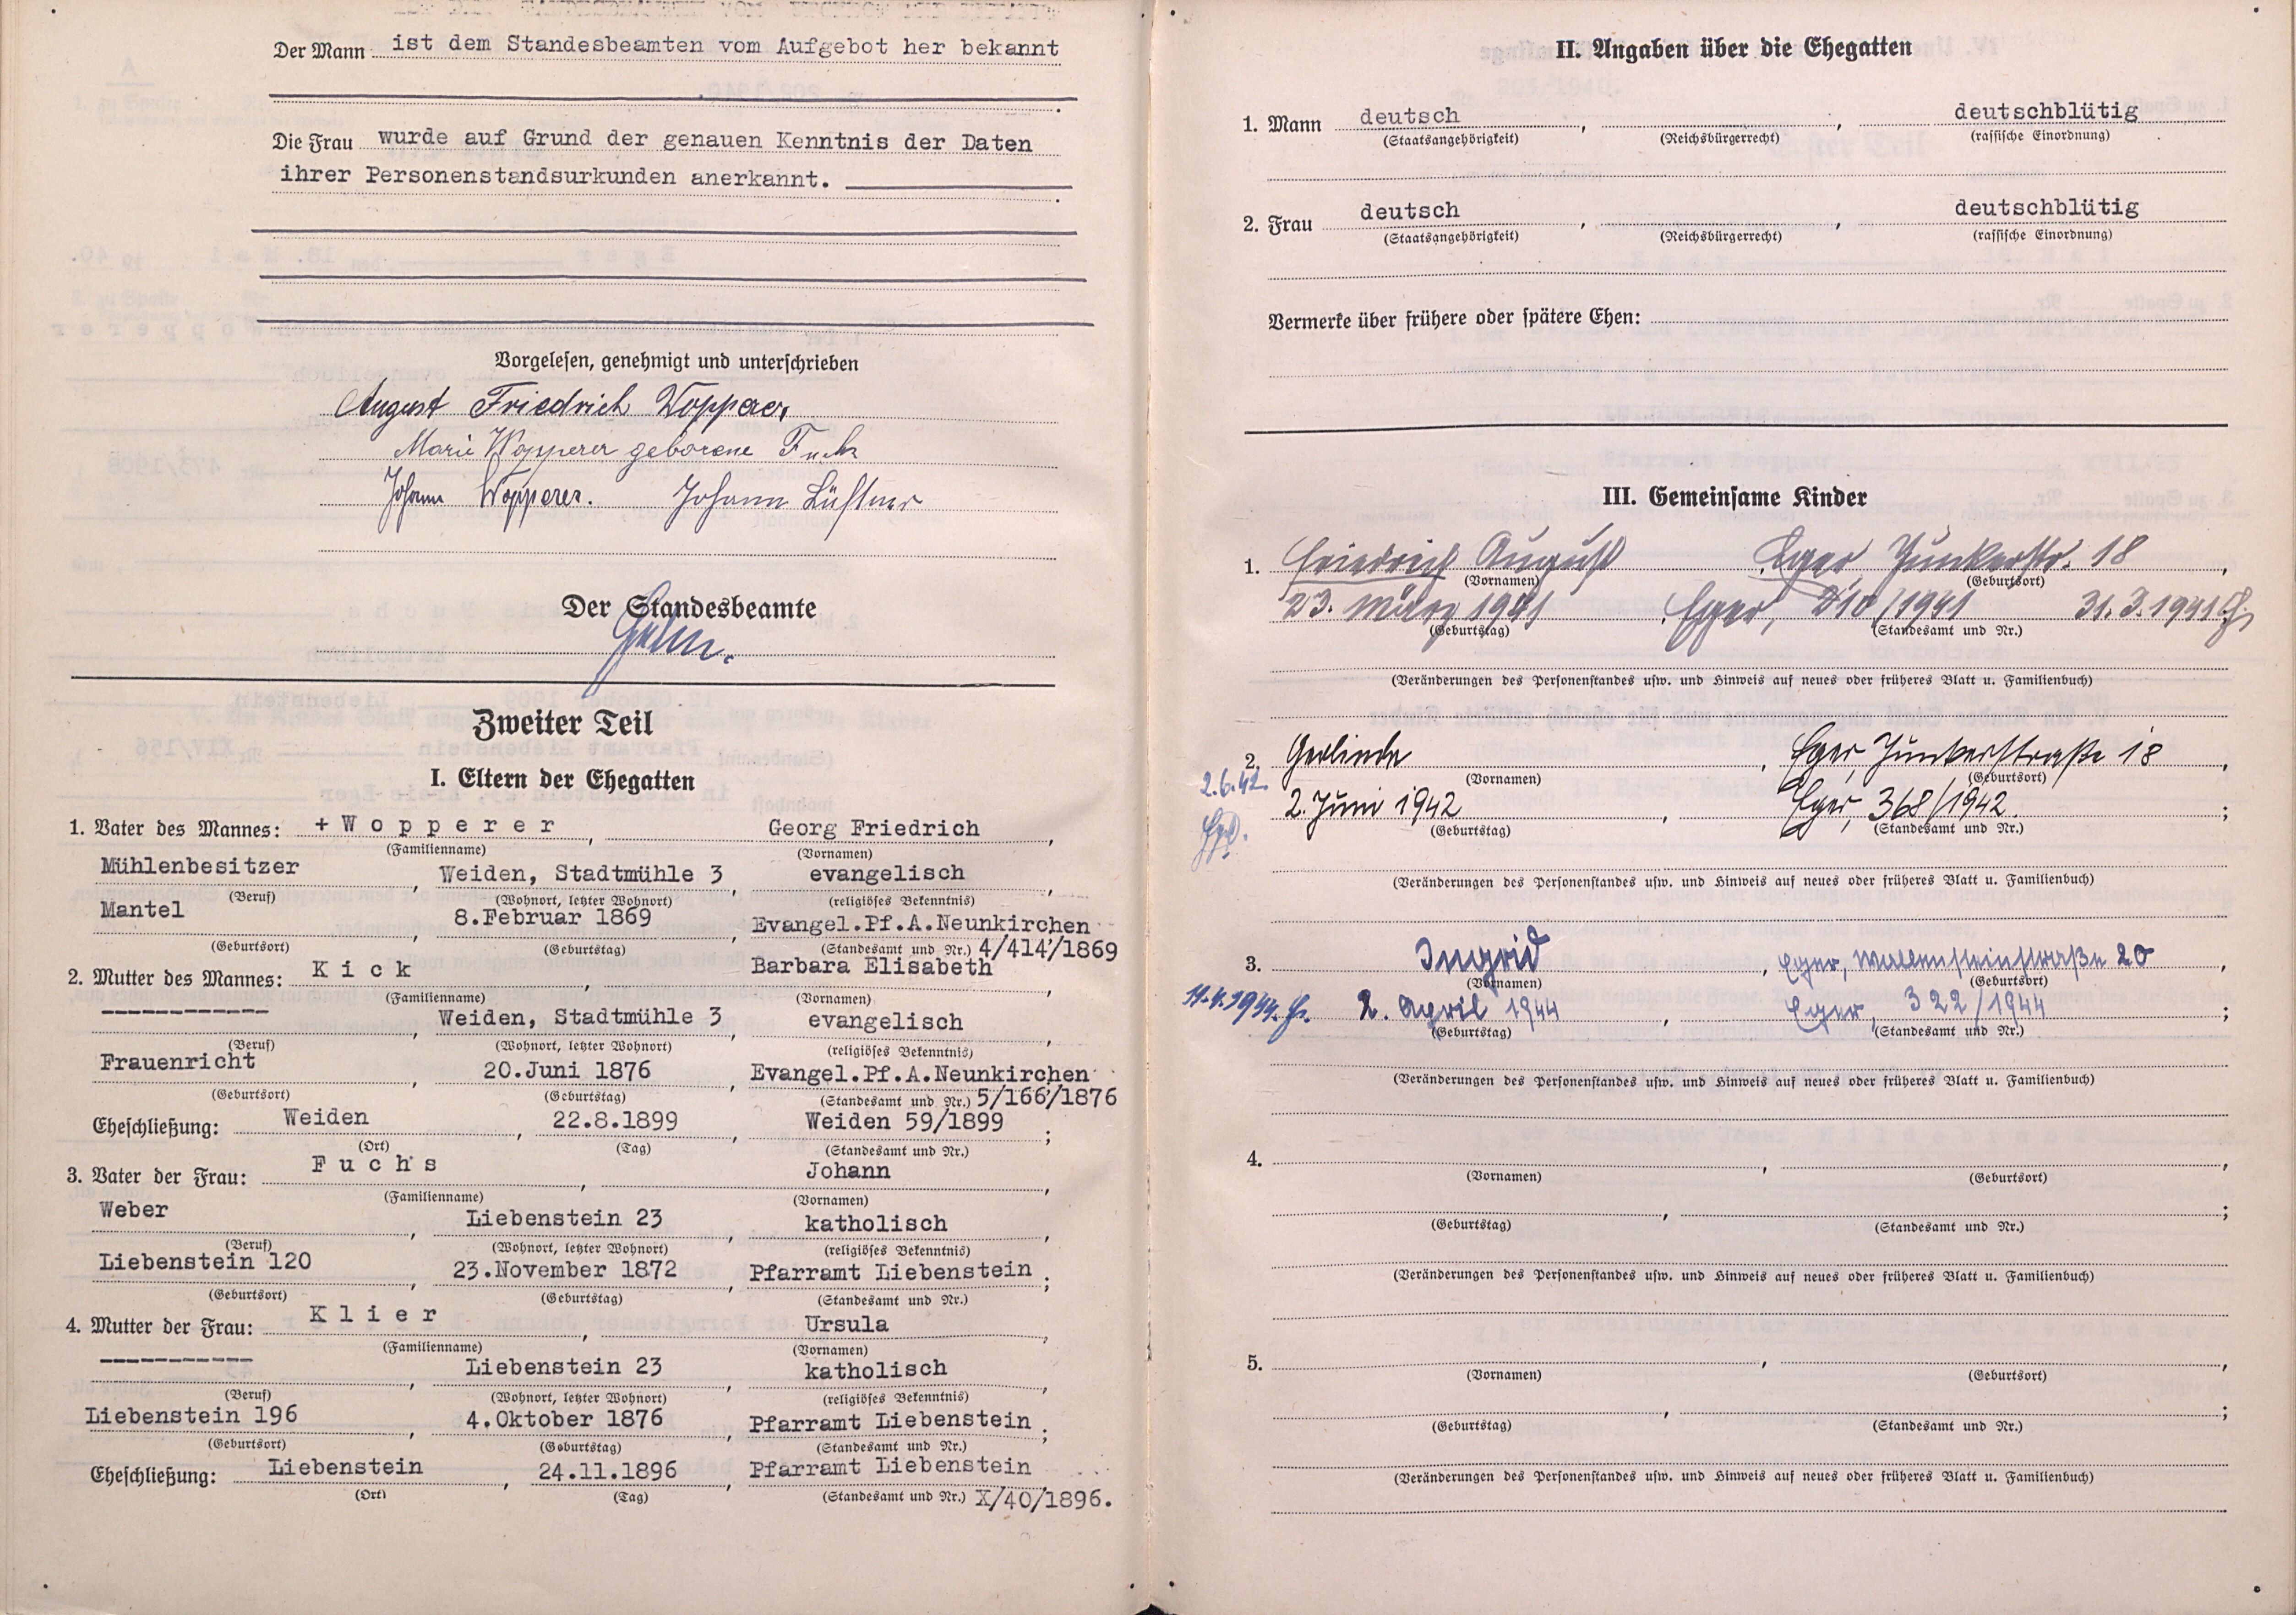 Der Mann ist dem Standesbeamten vom Aufgebot her bekannt
Die Frau wurde auf Grund der genauen Kenntnis der Daten
ihrer Personenstandsurkunden anerkannt.
Vorgelesen, genehmigt und unterschrieben
August Friedrich Wopperer
Marie Wopperer geborene Fuchs
Johann Wopperer. Johann Lüftner
Der Standesbeamte
Zweiter Teil
I. Eltern der Ehegatten
1. Vater des Mannes: + Wopperer, Georg Friedrich,
(Familienname) (Vornamen)
Mühlenbesitzer, Weiden, Stadtmühle 3, evangelisch,
(Beruf) (Wohnort, letzter Wohnort) (religiöses Bekenntnis)
Mantel, 8.Februar 1869, Evangel.Pf.A.Neunkirchen
(Geburtsort) (Geburtstag) (Standesamt und Nr.) 4/414'/1869
2. Mutter des Mannes: Kick, Barbara Elisabeth,
(Familienname) (Vornamen)
-----------, Weiden, Stadtmühle 3, evangelisch,
(Beruf) (Wohnort, letzter Wohnort) (religiöses Bekenntnis)
Frauenricht, 20.Juni 1876, Evangel.Pf.A.Neunkirchen
(Geburtsort) (Geburtstag) (Standesamt und Nr.) 5/166'/1876
Eheschließung: Weiden, 22.8.1899, Weiden 59/1899;
(Ort) (Tag) (Standesamt und Nr.)
3. Vater der Frau: Fuchs, Johann,
(Familienname) (Vornamen)
Weber, Liebenstein 23, katholisch,
(Beruf) (Wohnort, letzter Wohnort) (religiöses Bekenntnis)
Liebenstein 120, 23.November 1872, Pfarramt Liebenstein;
(Geburtsort) (Geburtstag) (Standesamt und Nr.)
4. Mutter der Frau: Klier, Ursula,
(Familienname) (Vornamen)
-----------, Liebenstein 23, katholisch,
(Beruf) (Wohnort, letzter Wohnort) (religiöses Bekenntnis)
Liebenstein 196, 4.Oktober 1876, Pfarramt Liebenstein;
(Geburtsort) (Geburtstag) (Standesamt und Nr.)
Eheschließung: Liebenstein, 24.11.1896, Pfarramt Liebenstein
(Ort) (Tag) (Standesamt und Nr.) X/40/1896.
II. Angaben über die Ehegatten
1. Mann deutsch, , deutschblütig
(Staatsangehörigkeit) (Reichsbürgerrecht) (rassische Einordnung)
2. Frau deutsch, , deutschblütig
(Staatsangehörigkeit) (Reichsbürgerrecht) (rassische Einordnung)
Vermerke über frühere oder spätere Ehen:
III. Gemeinsame Kinder
1. Friedrich August, Eger, Junkerstr. 18,
(Vornamen) (Geburtsort)
23. März 1941, Eger, 210/1941 31.3.1941
(Geburtstag) (Standesamt und Nr.)
(Veränderungen des Personenstandes usw. und Hinweis auf neues oder früheres Blatt u. Familienbuch)
2. Gerlinde, Eger, Junkerstraße 18,
(Vornamen) (Geburtsort)
2.6.42. 2. Juni 1942, Eger, 368/1942.;
(Geburtstag) (Standesamt und Nr.)
(Veränderungen des Personenstandes usw. und Hinweis auf neues oder früheres Blatt u. Familienbuch)
3. Ingrid, Eger, Wallensteinstraße 20,
(Vornamen) (Geburtsort)
11.4.1944. 2. April 1944, Eger, 322/1944;
(Geburtstag) (Standesamt und Nr.)
(Veränderungen des Personenstandes usw. und Hinweis auf neues oder früheres Blatt u. Familienbuch)
4. , ,
(Vornamen) (Geburtsort)
, ;
(Geburtstag) (Standesamt und Nr.)
(Veränderungen des Personenstandes usw. und Hinweis auf neues oder früheres Blatt u. Familienbuch)
5. , ,
(Vornamen) (Geburtsort)
, ;
(Geburtstag) (Standesamt und Nr.)
(Veränderungen des Personenstandes usw. und Hinweis auf neues oder früheres Blatt u. Familienbuch)